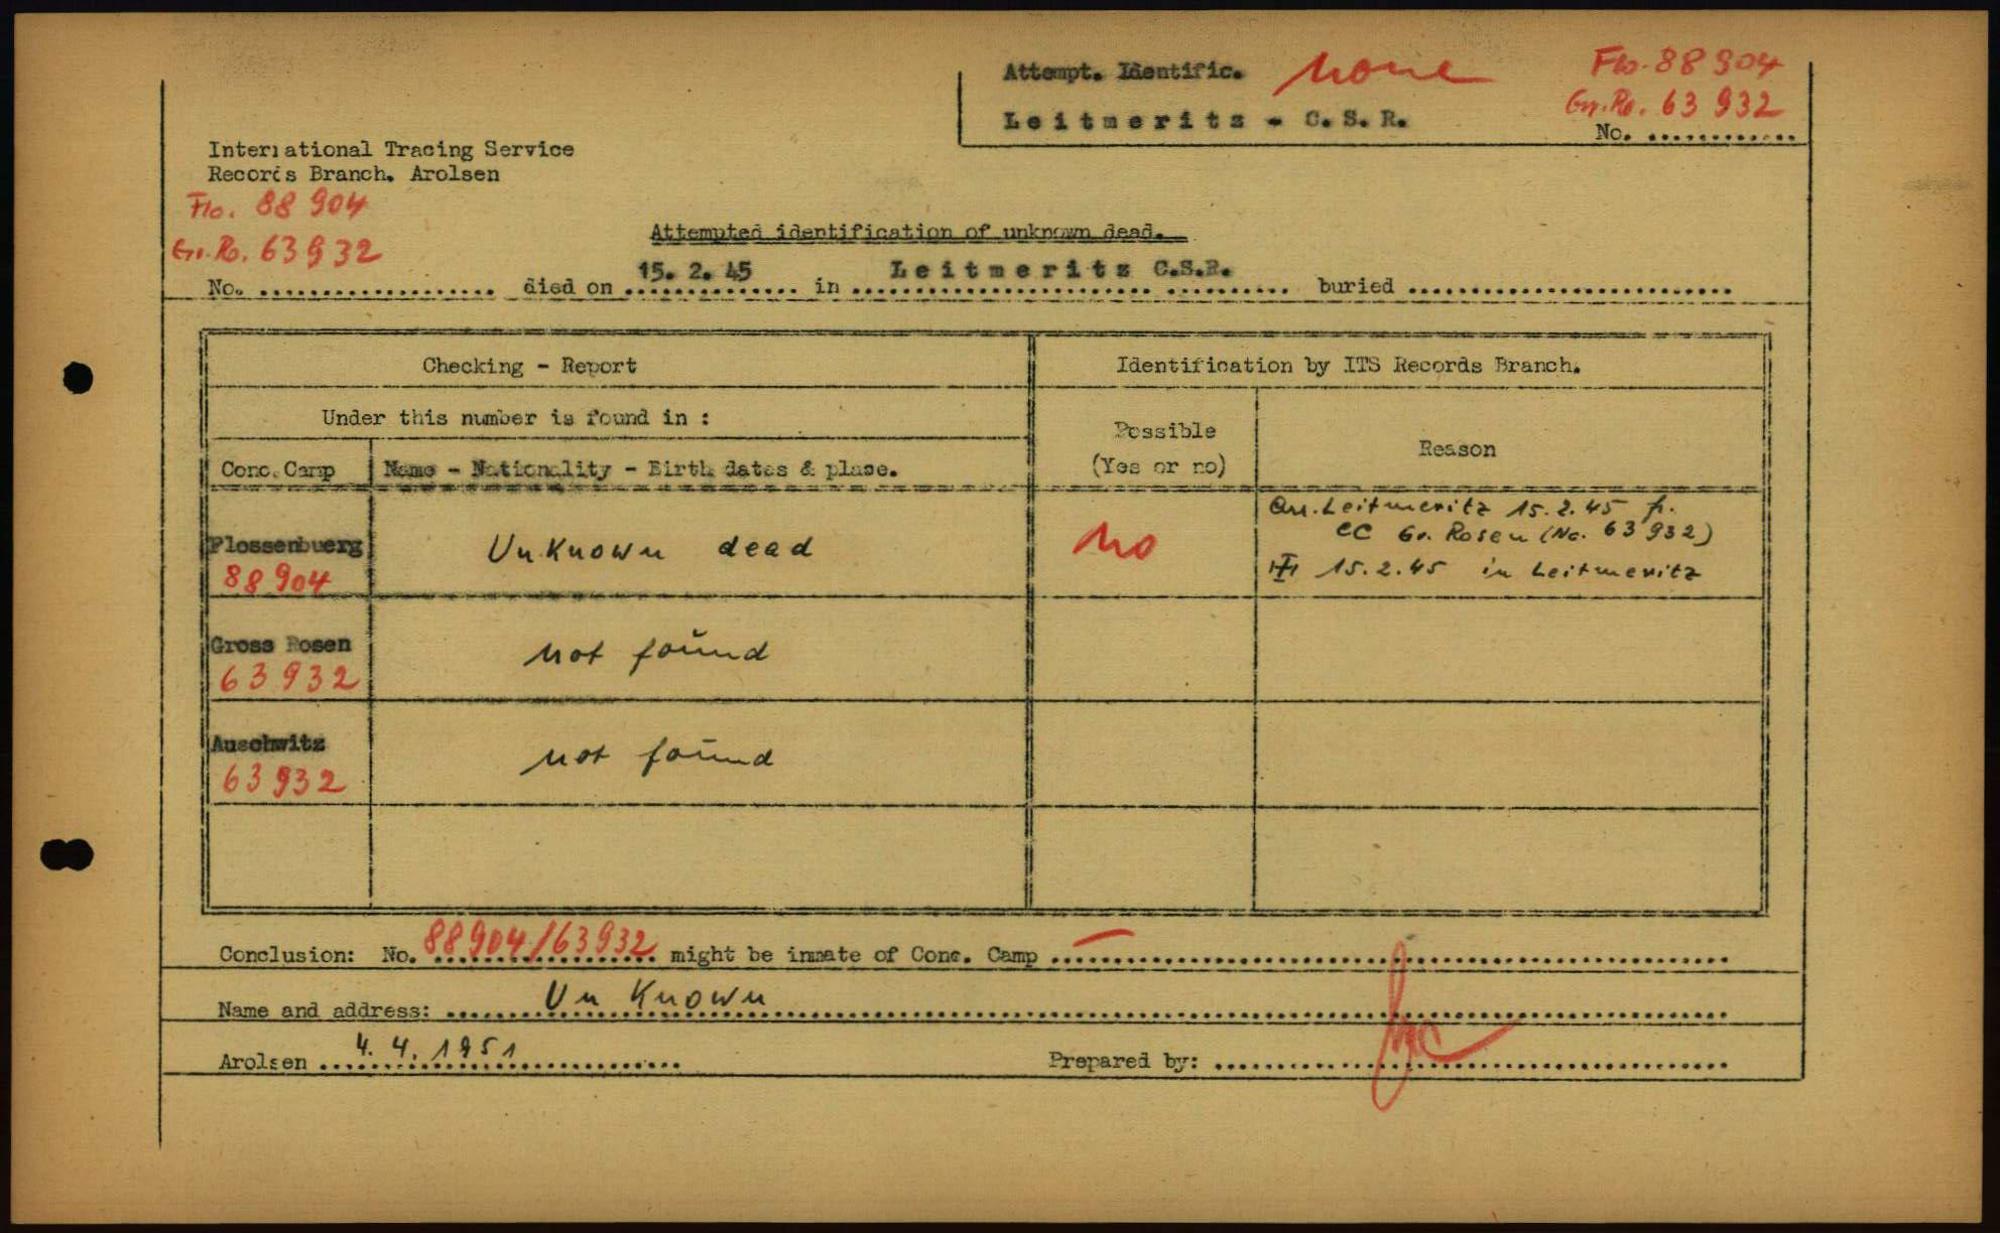 Attempt. Identific. none
Flo. 88 904
Gr. Ro. 63 932
Leitmeritz - C.S.R.
No. .............
International Tracing Service
Records Branch. Arolsen
Flo. 88 904
Gr. Ro. 63 932
Attempted identification of unknown dead.
No. .................... died on 15. 2. 45 in Leitmeritz C.S.R. buried ............................
Checking - Report
Identification by ITS Records Branch.
Under this number is found in :
Possible
(Yes or no)
Reason
Conc. Camp
Name - Nationality - Birth dates & place.
Flossenbuerg
88 904
Unknown dead
no
Arr. Leitmeritz 15. 2. 45 fr.
CC Gr. Rosen (No. 63 932)
15. 2. 45 in Leitmeritz
Gross Rosen
63 932
not found
Auschwitz
63 932
not found
Conclusion: No. 88 904/63 932 might be inmate of Conc. Camp — ............................
Name and address: Unknown
Arolsen 4. 4. 1951
Prepared by: ............................